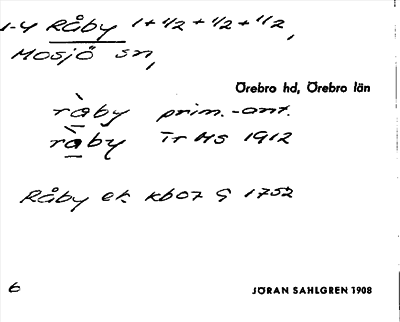 1-4 Råby 1+1/2+1/2+1/2,
Mosjö sn,
Örebro hd, Örebro län
ràby prim.-ant.
ràby Tr HS 1912
Råby ek kb07 G 1752
6 JÖRAN SAHLGREN 1908